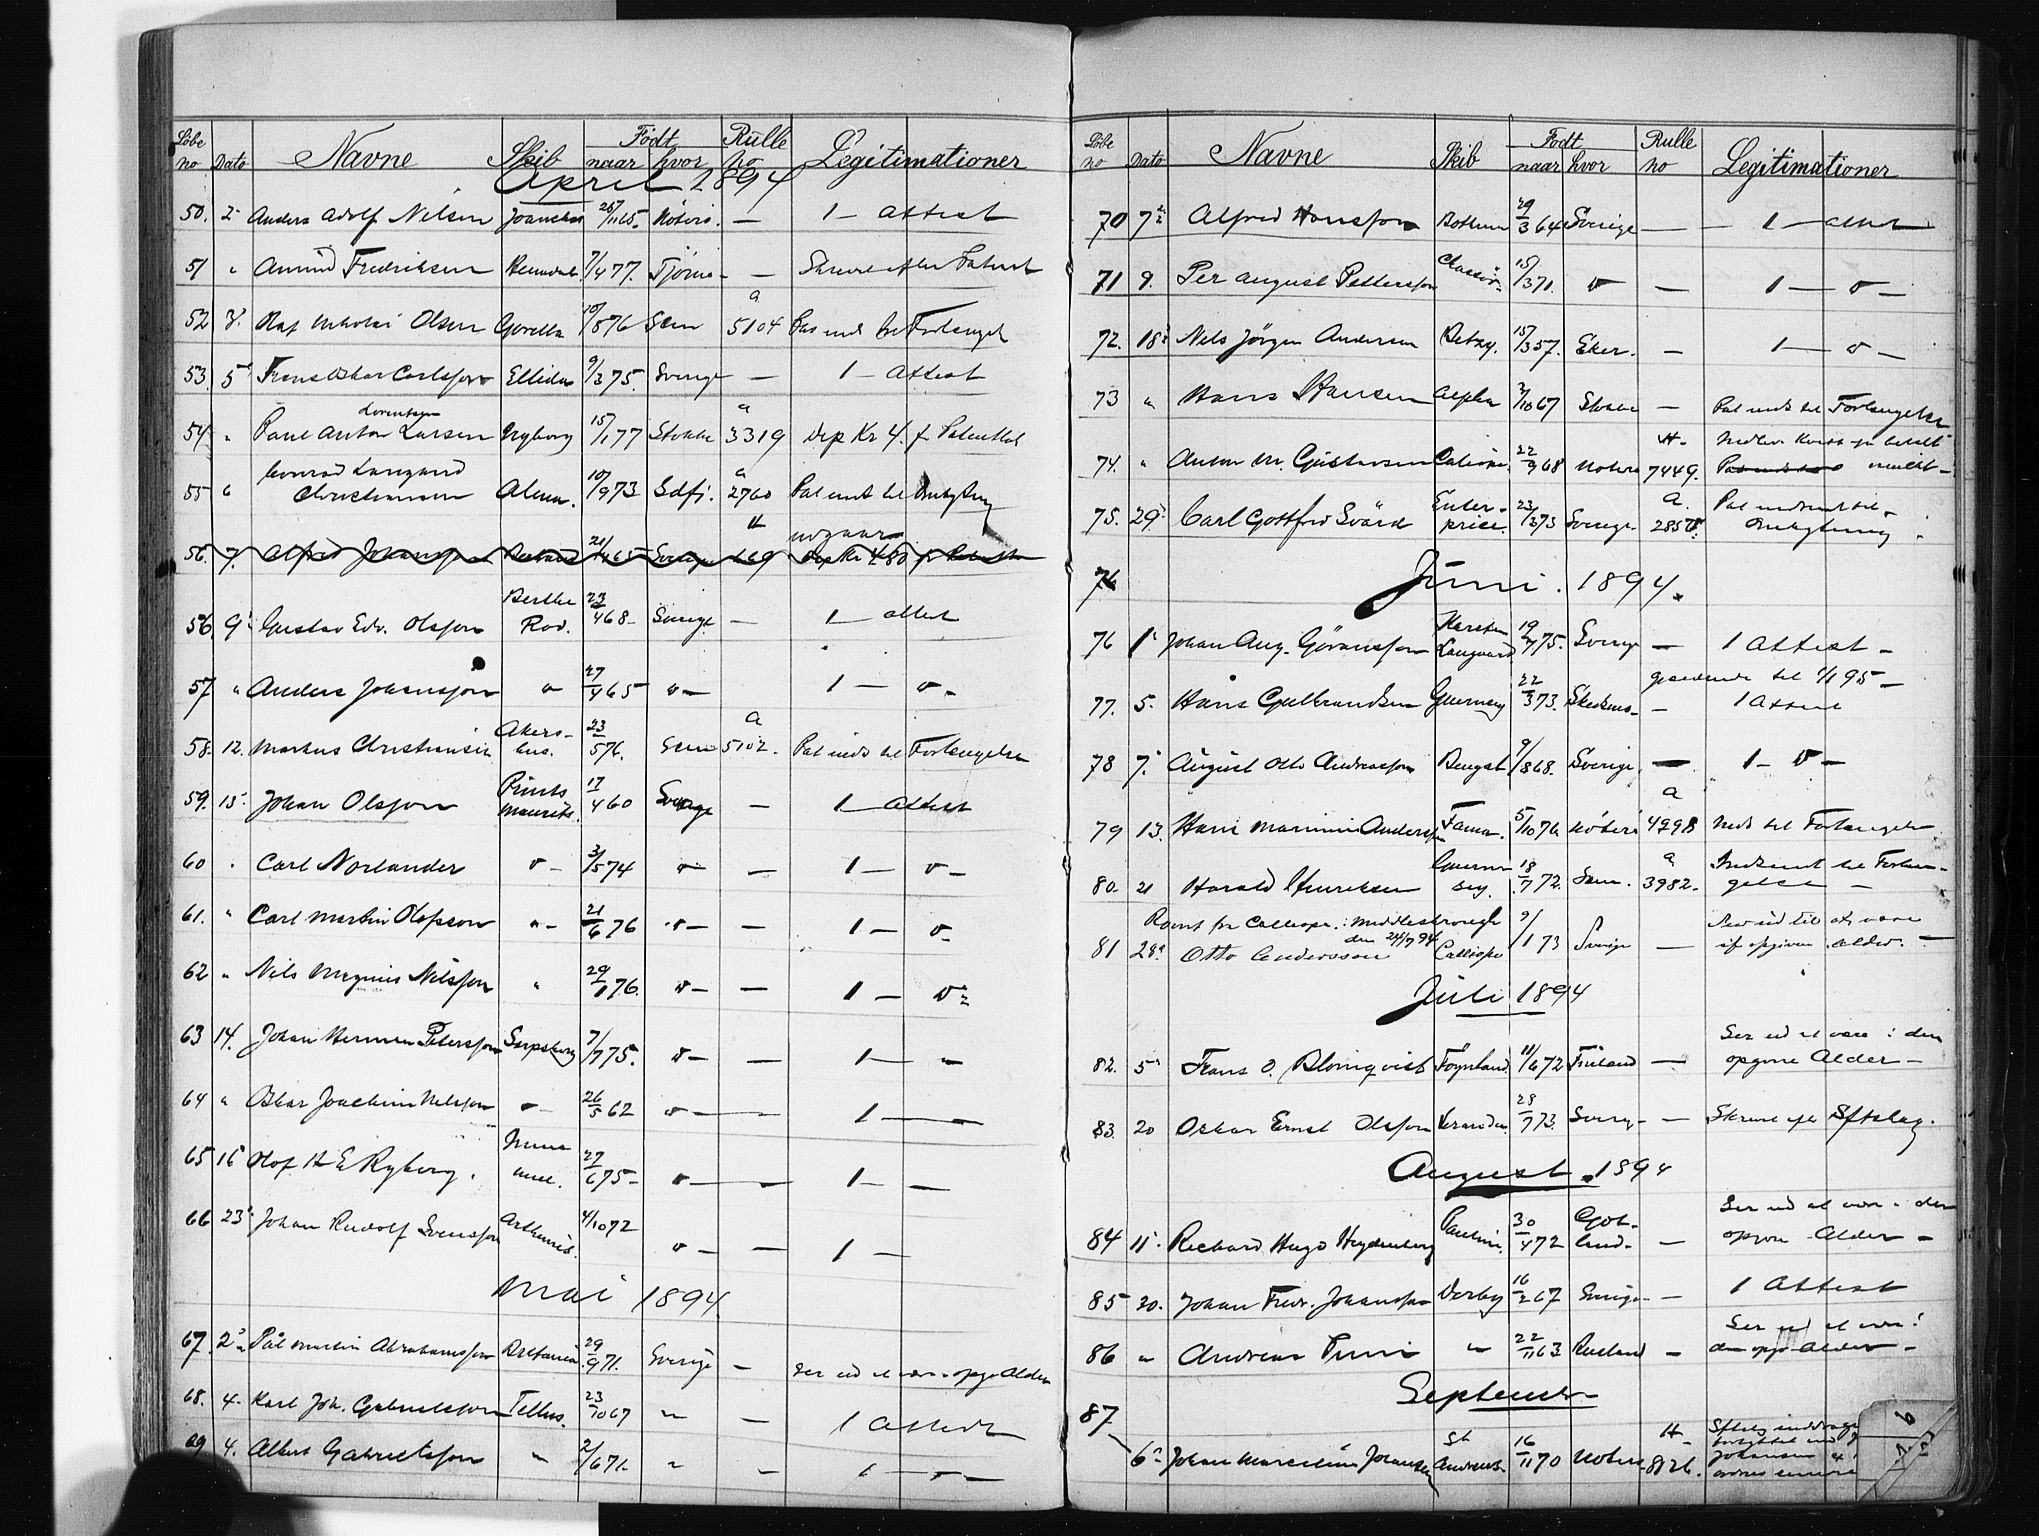 Løbe no Dato Navne Skib Født naar hvor Rulle no Legitimationer
April 1894
50. 2 Anders Adolf Nilsen 26/11 65 Nøterø — 1 — Attest
51 " Amund Fredriksen 7/4 77. Tjømø — — Skrive efter Patent
52 3. Olaf Nikolai Olsen Gorella 10/8 76 Sem a 5104 Pas inds til Forlænget
53. 5 Frans Oskar Carlsson Ellida 9/3 75. Sverige — 1 — Attest
Lorentzen
54 " Paul Anton Larsen Nyborg 15/1 77 Stokke a 3319 Dep Kr 4. f. Patenthol
55 " Conrad Langaard
Christiansen Alma. 10/9 73 Sdfj. a 2760 Pat inds til Ombytning
udgaar
56. 7. Alfred Johansson 21/4 65 Sverige H 169 Dep Kr 4.80
56. 9 Gustav Edv. Olsson Berthe Rød. 23/4 68 — Sverige — 1 — attest
57 " Anders Johansson " 27/4 65 " — 1 — " —
58. 12. Markus Christiansen Akershus. 23/5 76. Sem a 5102. Pat inds til Forlængelse
59. 13. Johan Olsson Prints Maurits. 17/4 60 Sverige — 1 Attest
60 " Carl Norlander " — 3/5 74 " — — 1 — " —
61. " Carl Martin Olofsson " — 21/6 76 " — — 1 — "
62 " Nils Magnus Nilsson " 29/1 76. " — — 1 — "
63 14. Johan Herman Petersson Sarpsborg 7/7 75. " — — 1 — —
64 " Oskar Joachim Nilsson " — 26/5 62 " — — 1 — —
65 15 Olof H E Ryberg. 27/6 75 — " — — 1 — —
66 23 Johan Rudolf Svensson Arthemis. 4/10 72 " — — 1 —
Mai 1894
67. 2 Pål Martin Abrahamsson Britania 29/9 71. Sverige — Ser ud at være opgo Alder
68. 4. Karl Joh. Gabrielsson Tellus. 23/10 67 " — 1 Attest
69 4. Albert Gabrielsson " 2/6 71. " — 1 — " —
Løbe no Dato Navne Skib Født naar hvor Rulle no Legitimationer
70 7 Alfred Hansson 29/3 64 Sverige — — 1 — attest
71 9. Per August Pettersson 15/3 71. " — 1 — " —
72. 18 Nels Jørgen Andersen Betzy. 15/3 57. Eker. — 1 — " —
73 " Hans Hansen Alpha 3/10 67 Stokke — Pat inds til Forlængelse
74. " Anton M. Gustavsen 22/9 68 Nøterø H. 7449.
75. 29 Carl Gottfred Svärd Enterprice. 23/2 73 Sverige a. 2858. Pat indsent til
Ombytning
76 Juni. 1894.
76 1 Johan Aug. Göransson Karsten Langaard 19/7 75. Sverige — 1 Attest —
gjældende til 1/1 95 —
77. 5. Hans Gulbrandsen Guernsey 22/3 73. Skedsmo — 1 Attest
78 7. August Otto Andreasson Bengst 9/8 68. Sverige. — 1 — " —
79 13. Hans Marinius Andersen Fama. 5/10 76 Nøterø a 4298 Inds til Forlængelse
80. 21 Harald Henriksen Guernsey 18/7 72. Sem. a 3982. Indsent til Forlængelse —
Rømt fra Calliope i Middlesbrough
den 24/7 94
81 28 Otto Andersson Calliope 9/1 73 Sverige — Ser ud til at være
if opgiven alder. —
Juli 1894
82. 5 Frans O. Blomqvist Føynland 11/6 72 Finland — Ser ud at være i den
opgivne Alder —
83. 20 Oskar Ernst Olsson 28/7 73. Sverig — Skrive efter Sftslag.
August 1894
84 11. Richard Hugo Heydenberg Pauline. 30/4 72 Gotland. — Ser ud at være i den
opgivn Alder —
85 20. Johan Fredr. Johansson Derby 16/2 67 Sverige — 1 Attest
86 " Andreas " 22/11 63 Rusland — Ser ud at være i
den opgo Alder —
September
87.
6 Johan Marcelius Johansen St Andreas 16/11 70 Nøterø H. 8126.